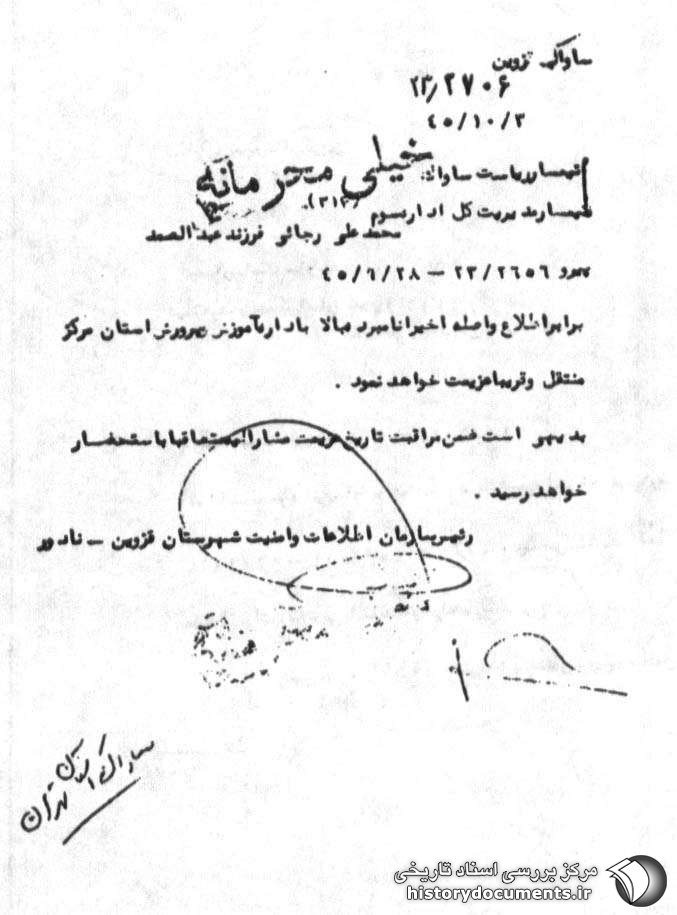 ساواک قزوین
۲۳/۲۷۰۶
۴۵/۱۰/۳
خیلی محرمانه
تیمسار ریاست ساواک
تیمسار مدیریت کل اداره سوم (۳۱۲)
محمد علی رجائی فرزند عبدالصمد
پیرو ۲۳/۲۶۵۶ – ۴۵/۹/۲۸
برابر اطلاع واصله اخیرا نامبرده بالا باداره آموزش پرورش استان مرکز
منتقل و قریبا عزیمت خواهد نمود .
بدیهی است ضمن مراقبت تاریخ عزیمت مشارالیه متعاقبا باستحضار
خواهد رسید .
رئیس سازمان اطلاعات وامنیت شهرستان قزوین – نادور
ساواک استان
تهران
مرکز بررسی اسناد تاریخی
historydocuments.ir